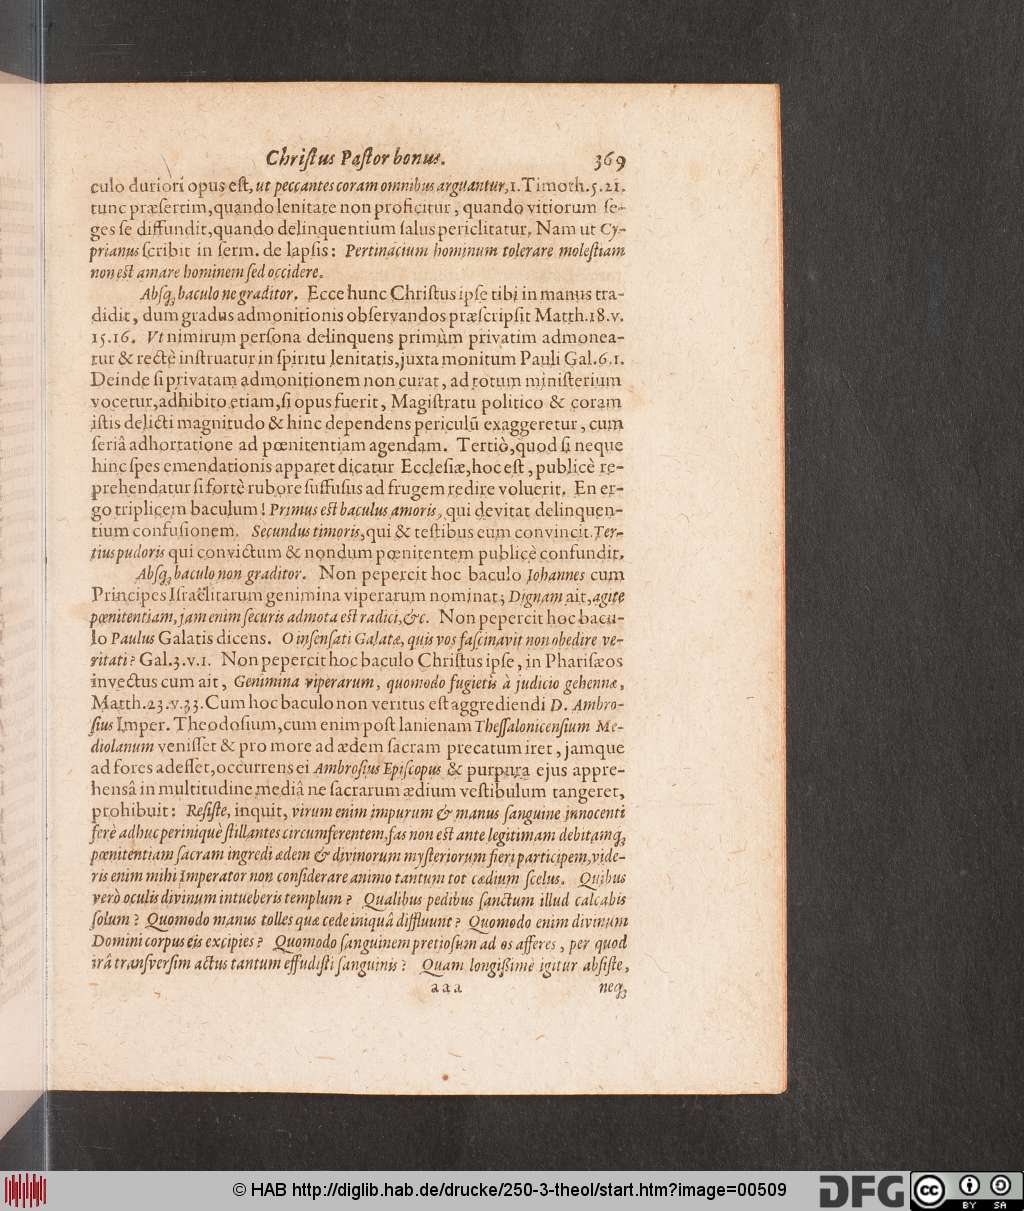 Christus Pastor bonus. 369
culo duriori opus est, ut peccantes coram omnibus arguantur, 1. Timoth. 5. 21.
tunc præsertim, quando lenitate non proficitur, quando vitiorum se-
ges se diffundit, quando delinquentium salus periclitatur. Nam ut Cy-
prianus scribit in serm. de lapsis: Pertinacium hominum tolerare molestiam
non est amare hominem sed occidere.
Absq; baculo ne graditor. Ecce hunc Christus ipse tibi in manus tra-
didit, dum gradus admonitionis observandos præscripsit Matth. 18. v.
15. 16. Vt nimirum persona delinquens primùm privatim admonea-
tur & rectè instruatur in spiritu lenitatis, juxta monitum Pauli Gal. 6. 1.
Deinde si privatam admonitionem non curat, ad totum ministerium
vocetur, adhibito etiam, si opus fuerit, Magistratu politico & coram
istis delicti magnitudo & hinc dependens periculū exaggeretur, cum
seriâ adhortatione ad pœnitentiam agendam. Tertiò, quod si neque
hinc spes emendationis apparet dicatur Ecclesiæ, hoc est, publicè re-
prehendatur si fortè rubore suffusus ad frugem redire voluerit. En er-
go triplicem baculum! Primus est baculus amoris, qui devitat delinquen-
tium confusionem. Secundus timoris, qui & testibus eum convincit. Ter-
tius pudoris qui convictum & nondum pœnitentem publicè confundit.
Absq; baculo non graditor. Non pepercit hoc baculo Johannes cum
Principes Israëlitarum genimina viperarum nominat; Dignam ait, agite
pœnitentiam, jam enim securis admota est radici, &c. Non pepercit hoc bacu-
lo Paulus Galatis dicens. O insensati Galatæ, quis vos fascinavit non obedire ve-
ritati? Gal. 3. v. 1. Non pepercit hoc baculo Christus ipse, in Pharisæos
invectus cum ait, Genimina viperarum, quomodo fugietis à judicio gehennæ,
Matth. 23. v. 33. Cum hoc baculo non veritus est aggrediendi D. Ambro-
sius Imper. Theodosium, cum enim post lanienam Thessalonicensium Me-
diolanum venisset & pro more ad ædem sacram precatum iret, jamque
ad fores adesset, occurrens ei Ambrosius Episcopus & purpura ejus appre-
hensâ in multitudine mediâ ne sacrarum ædium vestibulum tangeret,
prohibuit: Resiste, inquit, virum enim impurum & manus sanguine innocenti
ferè adhuc periniquè stillantes circumferentem, fas non est ante legitimam debitamq;
pœnitentiam sacram ingredi ædem & divinorum mysteriorum fieri participem, vide-
ris enim mihi Imperator non considerare animo tantum tot cædium scelus. Quibus
verò oculis divinum intueberis templum? Qualibus pedibus sanctum illud calcabis
solum? Quomodo manus tolles quæ cede iniquâ diffluunt? Quomodo enim divinum
Domini corpus eis excipies? Quomodo sanguinem pretiosum ad os afferes, per quod
irâ transversim actus tantum effudisti sanguinis? Quam longißimè igitur absiste,
aaa neq;
© HAB http://diglib.hab.de/drucke/250-3-theol/start.htm?image=00509
DFG
cc BY SA